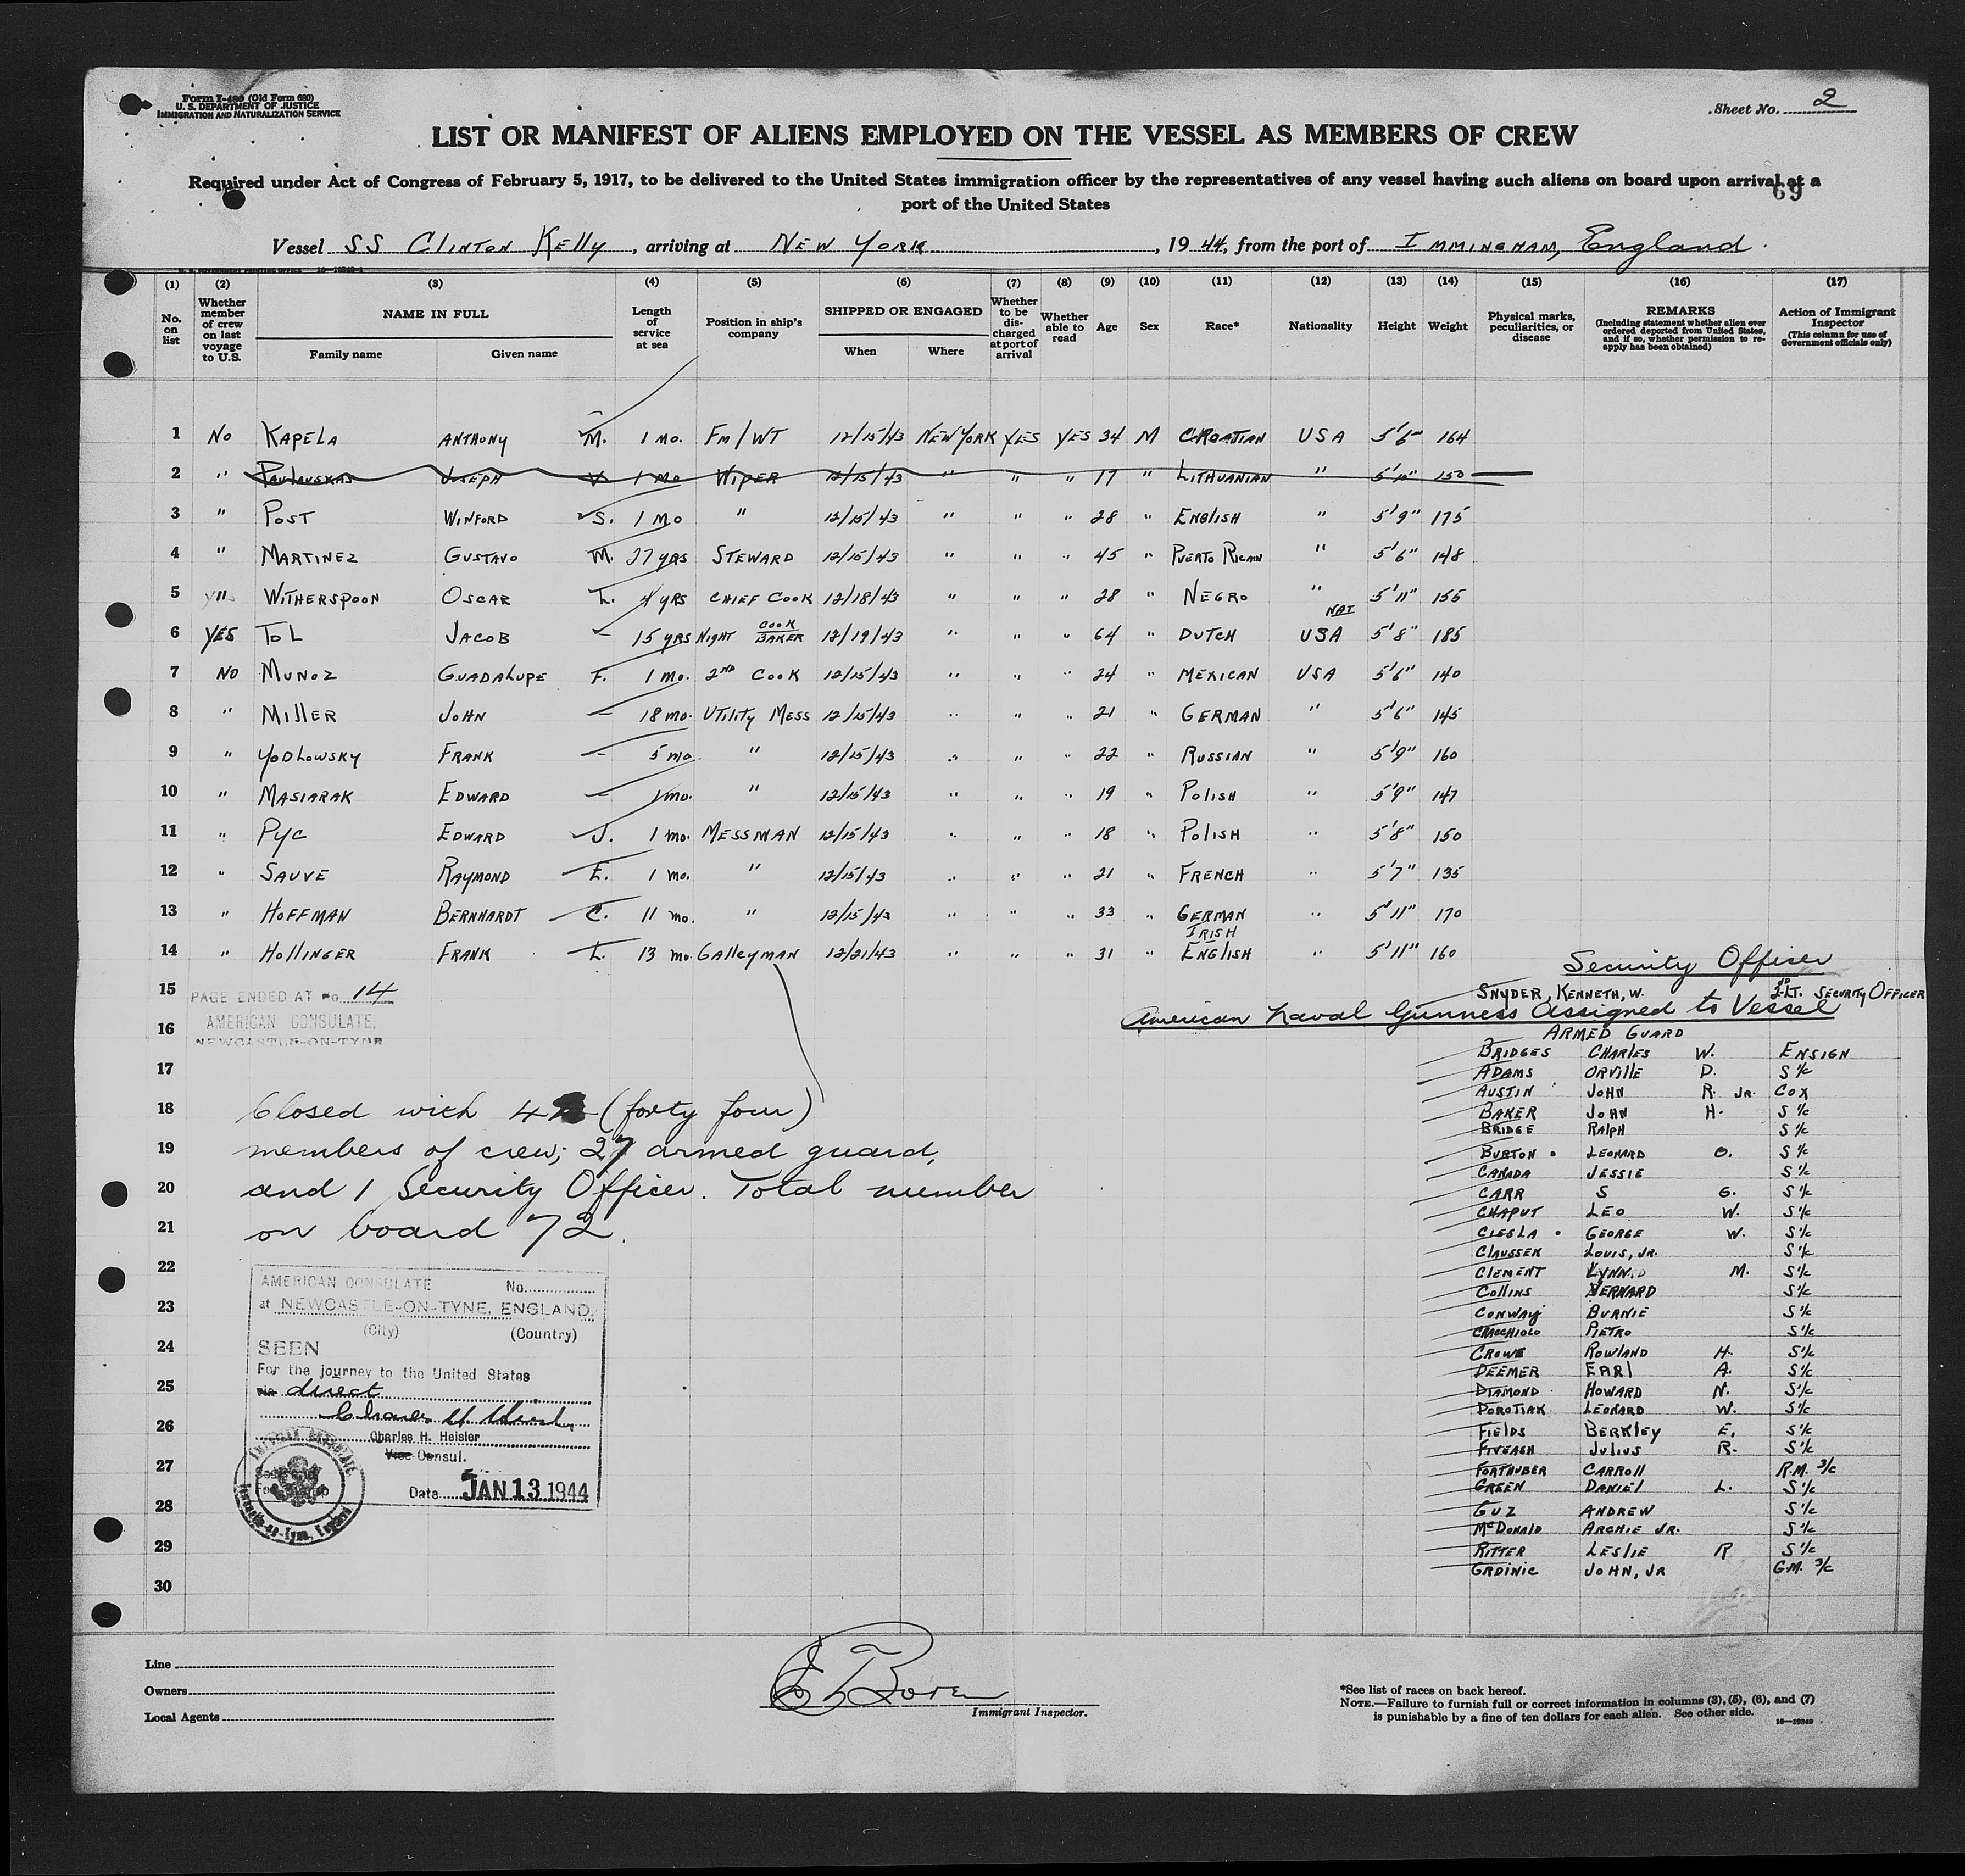 Form I-480 (Old Form 680)
U. S. DEPARTMENT OF JUSTICE
IMMIGRATION AND NATURALIZATION SERVICE
Sheet No. 2
LIST OR MANIFEST OF ALIENS EMPLOYED ON THE VESSEL AS MEMBERS OF CREW
Required under Act of Congress of February 5, 1917, to be delivered to the United States immigration officer by the representatives of any vessel having such aliens on board upon arrival at a
port of the United States
69
Vessel SS CLINTON KELLY, arriving at NEW YORK, 1944, from the port of IMMINGHAM, England.
(1) No. on list
(2) Whether member of crew on last voyage to U.S.
(3) NAME IN FULL Family name Given name
(4) Length of service at sea
(5) Position in ship's company
(6) SHIPPED OR ENGAGED When Where
(7) Whether to be discharged at port of arrival
(8) Whether able to read
(9) Age
(10) Sex
(11) Race*
(12) Nationality
(13) Height
(14) Weight
(15) Physical marks, peculiarities, or disease
(16) REMARKS (Including statement whether alien ever ordered deported from United States, and if so, whether permission to re-apply has been obtained)
(17) Action of Immigrant Inspector (This column for use of Government officials only)
1 NO KAPELA ANTHONY M. 1 MO. FM/WT 12/15/43 NEW YORK YES YES 34 M CROATIAN USA 5'6" 164
2 " PAULAUSKAS JOSEPH V 1 MO WIPER 12/15/43 " " " 17 " LITHUANIAN " 5'10" 150
3 " POST WINFORD S. 1 MO " 12/15/43 " " " 28 " ENGLISH " 5'9" 175
4 " MARTINEZ GUSTAVO M. 27 YRS STEWARD 12/15/43 " " " 45 " PUERTO RICAN " 5'6" 148
5 WITHERSPOON OSCAR L. 4 YRS CHIEF COOK 12/18/43 " " " 28 " NEGRO " 5'11" 155
6 YES TOL JACOB - 15 YRS NIGHT COOK BAKER 12/19/43 " " " 64 " DUTCH NAT USA 5'8" 185
7 NO MUNOZ GUADALUPE F. 1 MO. 2ND COOK 12/15/43 " " " 24 " MEXICAN USA 5'6" 140
8 " MILLER JOHN - 18 MO. UTILITY MESS 12/15/43 " " " 21 " GERMAN " 5'6" 145
9 " YODLOWSKY FRANK - 5 MO " 12/15/43 " " " 22 " RUSSIAN " 5'9" 160
10 " MASIARAK EDWARD - 1 MO. " 12/15/43 " " " 19 " POLISH " 5'9" 147
11 " PYC EDWARD J. 1 MO. MESSMAN 12/15/43 " " " 18 " POLISH " 5'8" 150
12 " SAUVE RAYMOND E. 1 MO. " 12/15/43 " " " 21 " FRENCH " 5'7" 135
13 " HOFFMAN BERNHARDT C. 11 MO. " 12/15/43 " " " 33 " GERMAN " 5'11" 170
14 " HOLLINGER FRANK L. 13 MO. GALLEYMAN 12/21/43 " " " 31 " IRISH ENGLISH " 5'11" 160
15
16
17
18
19
20
21
22
23
24
25
26
27
28
29
30
PAGE ENDED AT No. 14
AMERICAN CONSULATE,
NEWCASTLE-ON-TYNE
Closed with 44 (forty four)
members of crew; 27 armed guard,
and 1 Security Officer. Total number
on board 72.
AMERICAN CONSULATE No.
at NEWCASTLE-ON-TYNE, ENGLAND.
(City) (Country)
SEEN
For the journey to the United States
via direct
Charles H. Heisler
Charles H. Heisler
Vice Consul.
Date JAN 13 1944
Security Officer
SNYDER, KENNETH, W. 2ND LT. SECURITY OFFICER
American Naval Gunners Assigned to Vessel
ARMED GUARD
BRIDGES CHARLES W. ENSIGN
ADAMS ORVILLE D. S1/c
AUSTIN JOHN R. JR. COX
BAKER JOHN H. S1/c
BRIDGE RALPH S1/c
BURTON LEONARD O. S1/c
CANADA JESSIE S1/c
CARR S G. S1/c
CHAPUT LEO W. S1/c
CIESLA GEORGE W. S1/c
CLAUSSEN LOUIS, JR. S1/c
CLEMENT LYNN M. S1/c
COLLINS VERNARD S1/c
CONWAY BURNIE S1/c
CRACCHIOLO PIETRO S1/c
CROWE ROWLAND H. S1/c
DEEMER EARL A. S1/c
DIAMOND HOWARD N. S1/c
DOROTIAK LEONARD W. S1/c
FIELDS BERKLEY E. S1/c
FIVEASH JULIUS R. S1/c
FORTHUBER CARROLL R.M. 3/c
GREEN DANIEL L. S1/c
GUZ ANDREW S1/c
McDONALD ARCHIE JR. S1/c
RITTER LESLIE R S1/c
GRDINIC JOHN, JR G.M. 3/c
Line
Owners
Local Agents
Immigrant Inspector.
*See list of races on back hereof.
NOTE.—Failure to furnish full or correct information in columns (3), (5), (6), and (7)
is punishable by a fine of ten dollars for each alien. See other side.
16—19340